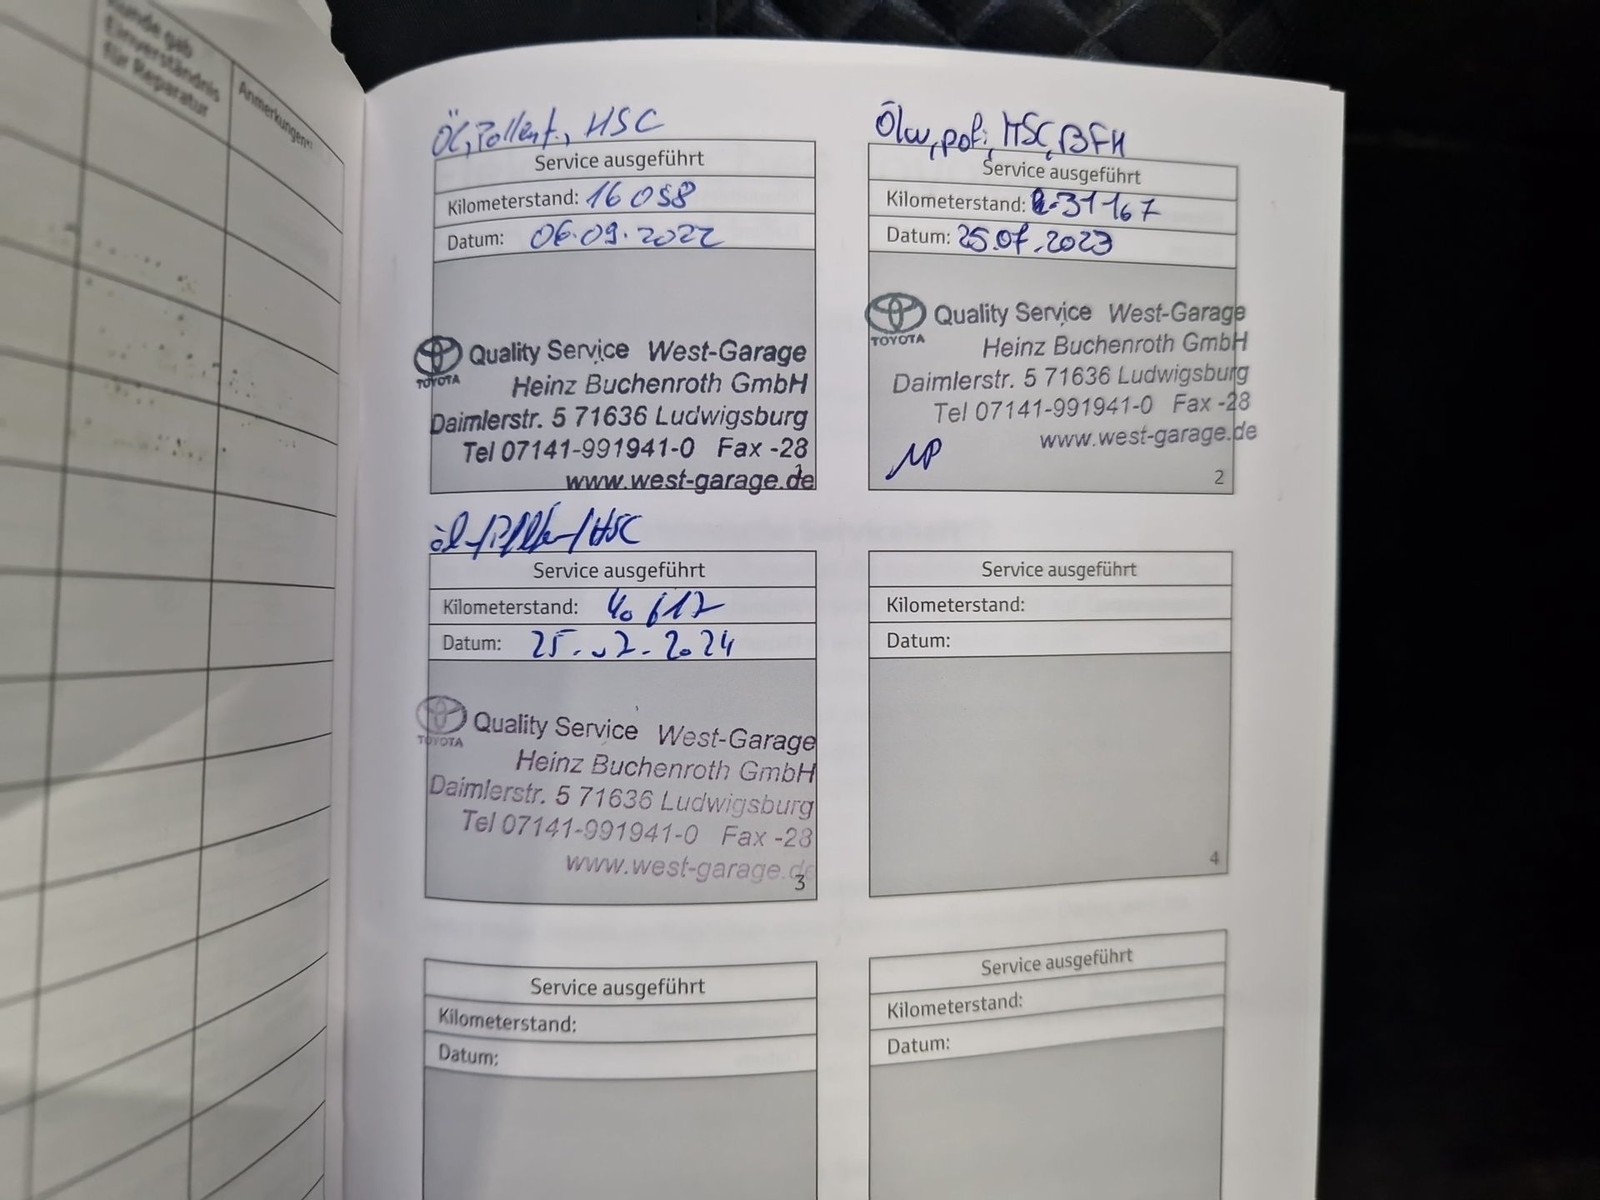 Kunde gab
Einverständnis
für Reparatur
Anmerkungen
Öl, Pollenf., HSC
Service ausgeführt
Kilometerstand: 16 058
Datum: 06.09.2022
TOYOTA
Quality Service West-Garage
Heinz Buchenroth GmbH
Daimlerstr. 5 71636 Ludwigsburg
Tel 07141-991941-0 Fax -28
www.west-garage.de
1
Ölw, pof:, HSC, BFH
Service ausgeführt
Kilometerstand: 31167
Datum: 25.07.2023
TOYOTA
Quality Service West-Garage
Heinz Buchenroth GmbH
Daimlerstr. 5 71636 Ludwigsburg
Tel 07141-991941-0 Fax -28
www.west-garage.de
2
HSC
Service ausgeführt
Kilometerstand: 40 617
Datum: 25. 2024
TOYOTA
Quality Service West-Garage
Heinz Buchenroth GmbH
Daimlerstr. 5 71636 Ludwigsburg
Tel 07141-991941-0 Fax -28
www.west-garage.de
3
Service ausgeführt
Kilometerstand:
Datum:
4
Service ausgeführt
Kilometerstand:
Datum:
Service ausgeführt
Kilometerstand:
Datum: